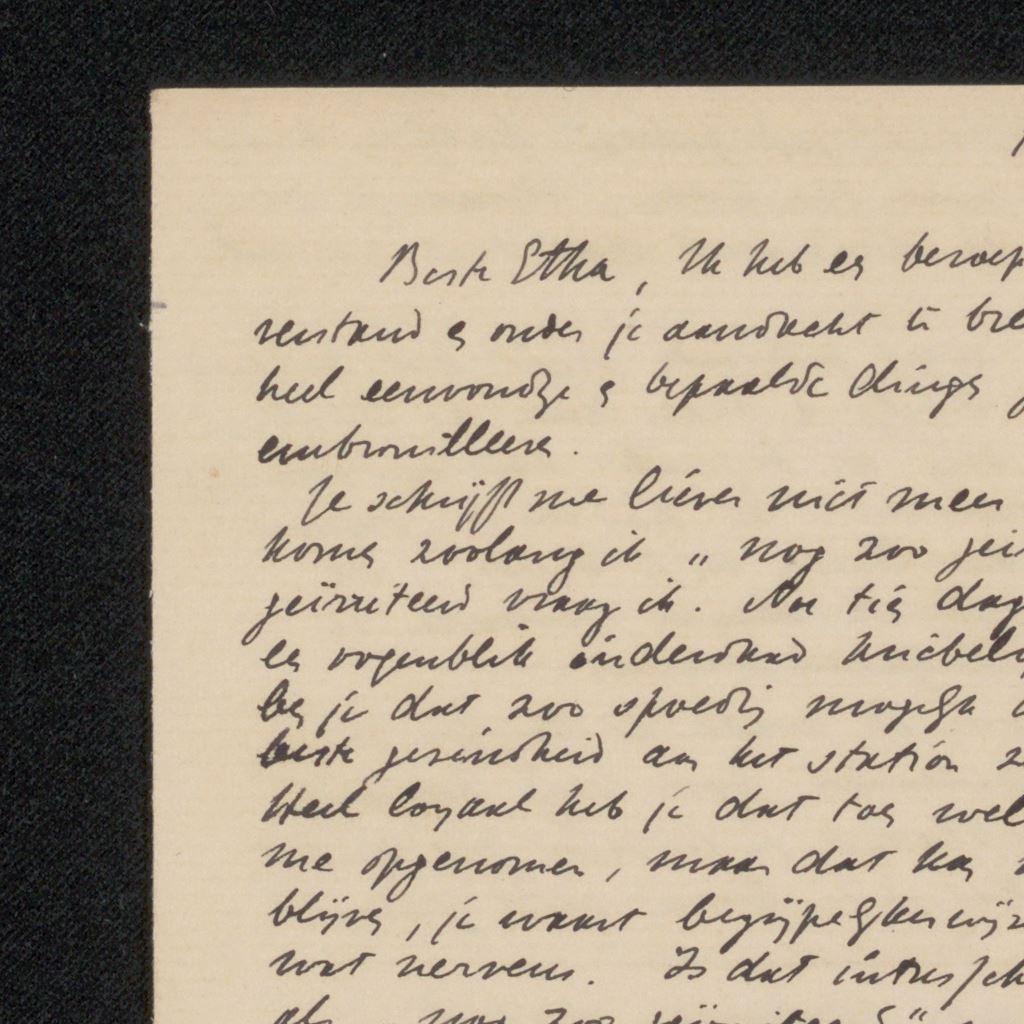 Beste Etha, Ik heb een beroep
verstand en onder je aandacht te bre
heel eenvoudige en bepaalde dingen
embrouilleeren.
Je schrijft me liever niet meer
komen zoolang ik „nog zoo geir
geïrriteerd vraag ik. Na tien dag
een oogenblik inderdaad kriebel
ben je dat zoo spoedig mogelijk
beste gezindheid aan het station
Heel loyaal heb je dat toen wel
me opgenomen, maar dat kan
blijven, je waart begrijpelijkerwijz
wat nerveus. Is dat intusschen